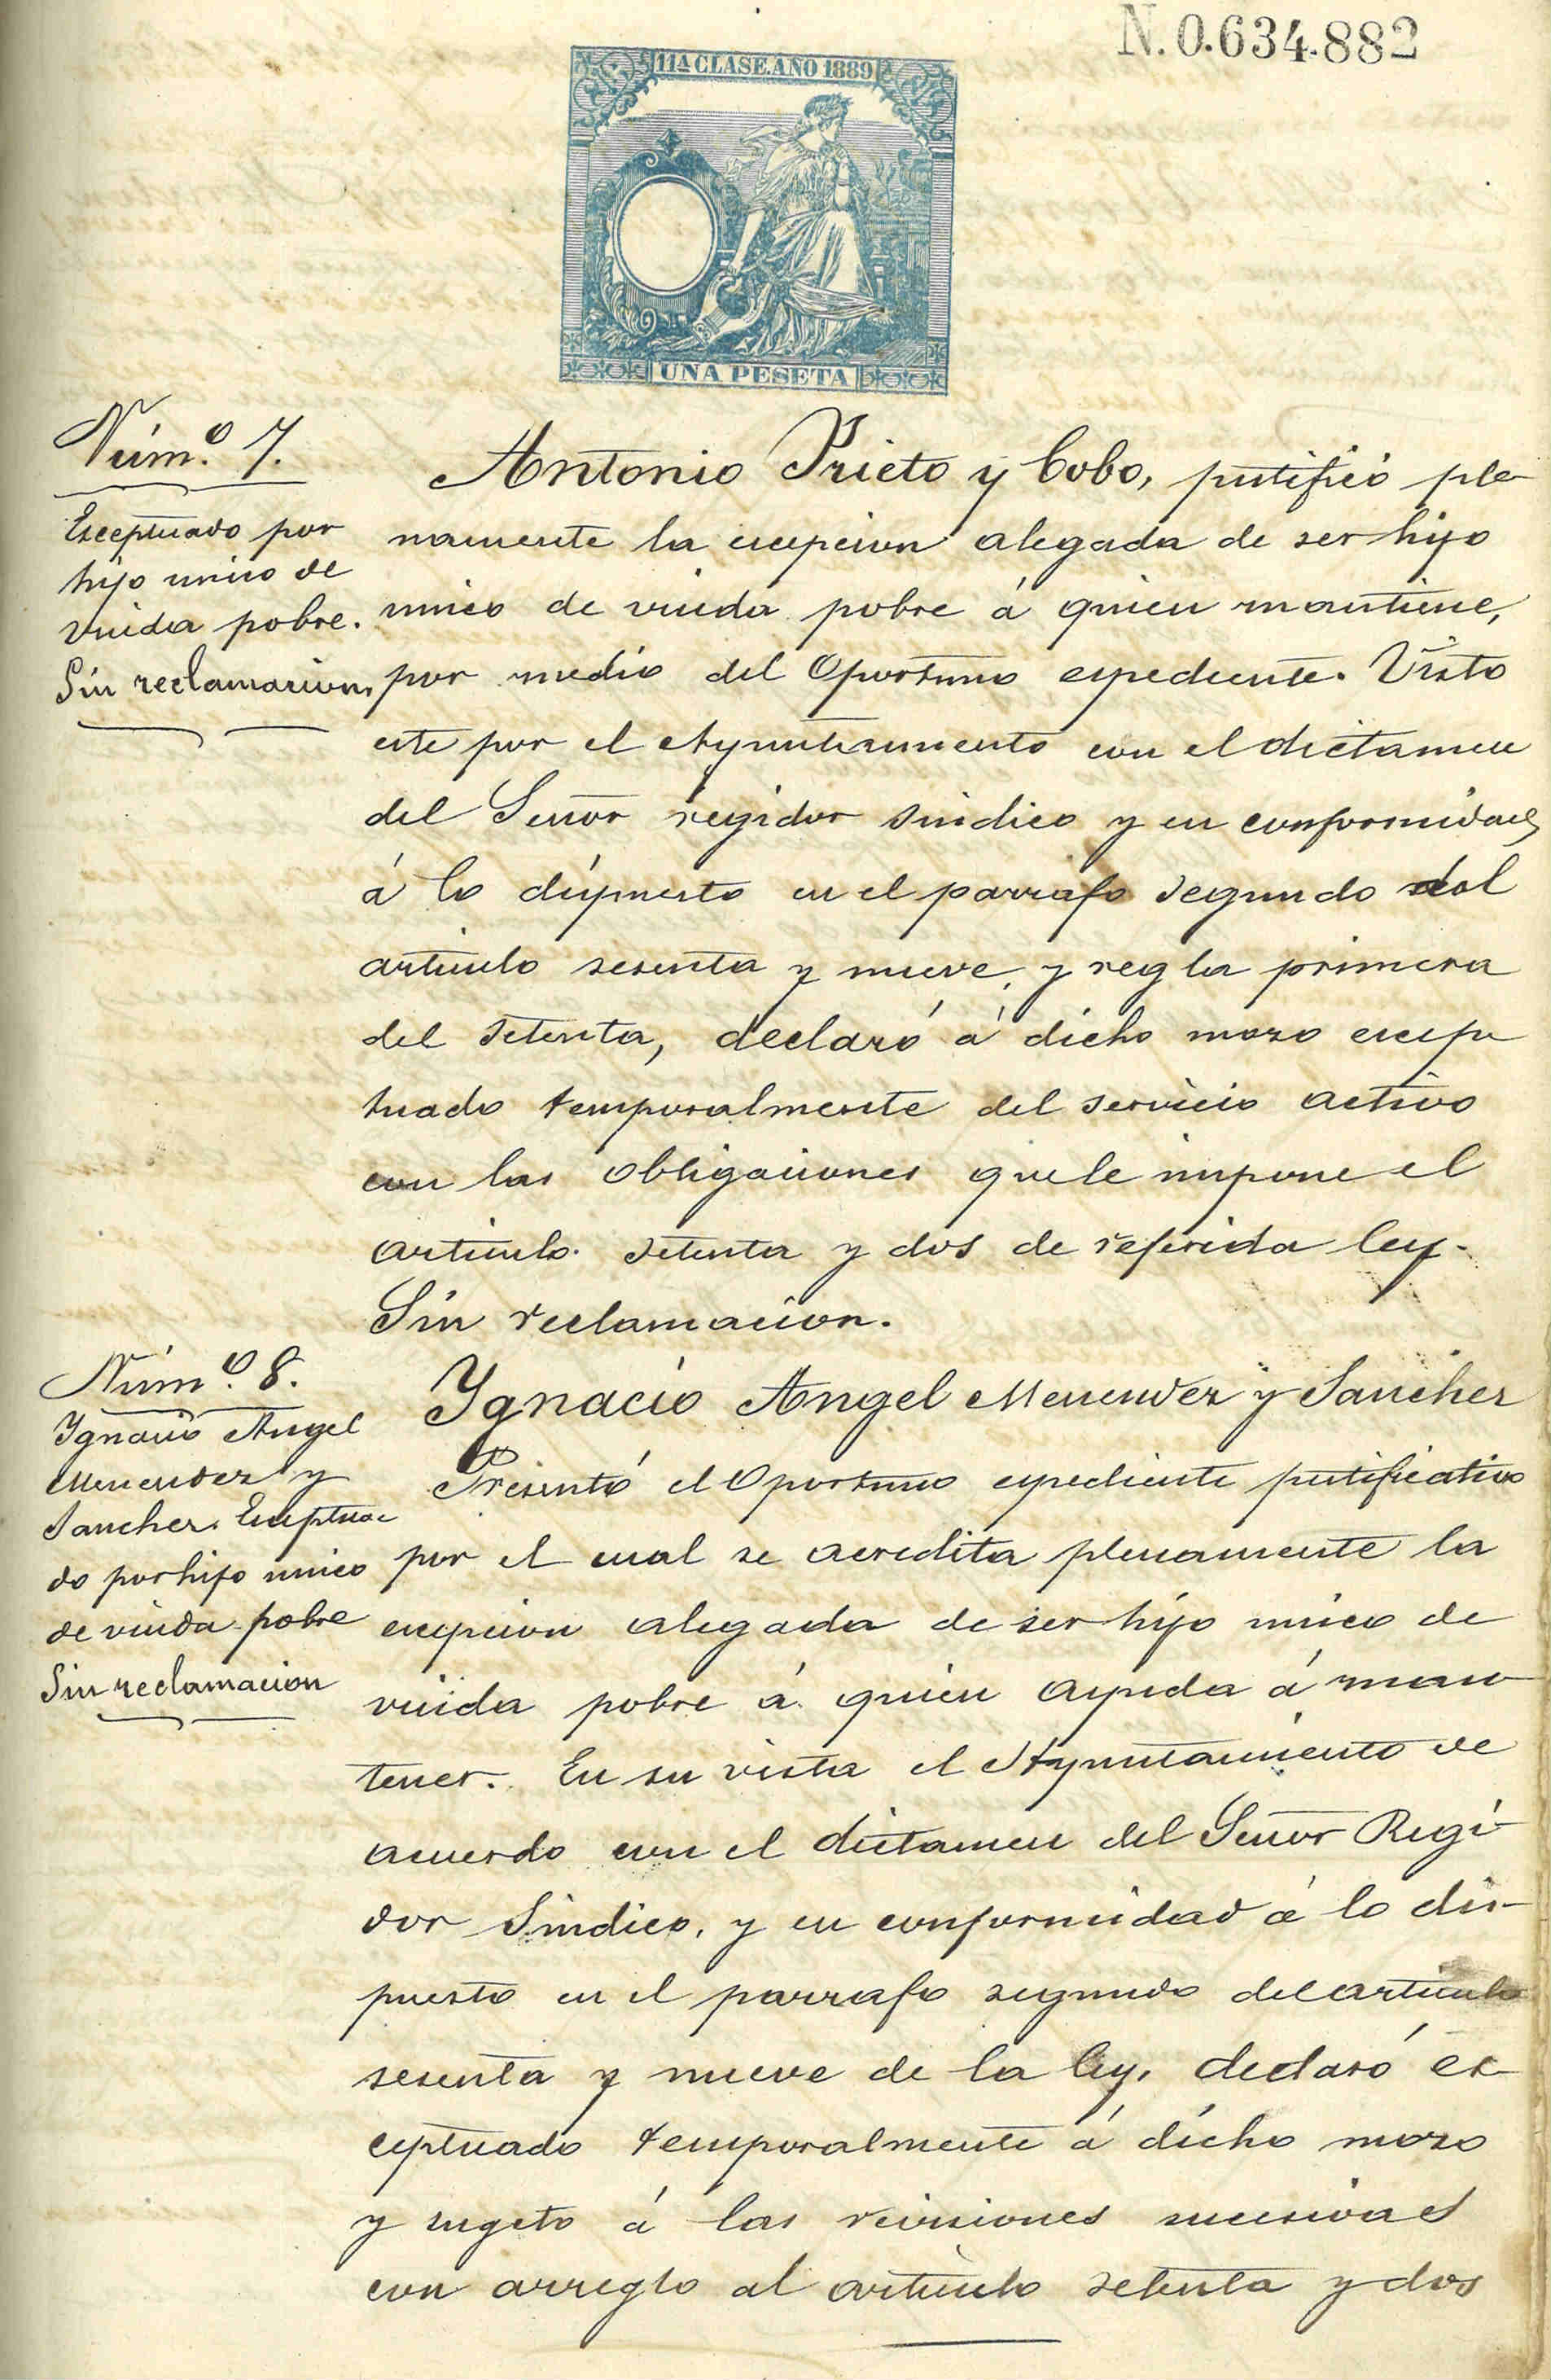 N.0.634.882
11ª CLASE.AÑO 1889
UNA PESETA
Núm.º 7.
Esceptuado por
hijo unico de
viuda pobre.
Sin reclamacion.
Antonio Prieto y Cobo, justificó ple-
namente la escepcion alegada de ser hijo
unico de viuda pobre á quien mantiene,
por medio del Oportuno espediente. Visto
este por el Ayuntamiento con el dictamen
del Señor regidor sindico y en conformidad
á lo dispuesto en el parrafo segundo del
articulo sesenta y nueve, y regla primera
del setenta, declaró á dicho mozo escep
tuado temporalmente del servicio activo
con las obligaciones que le impone el
articulo setenta y dos de referida ley.
Sin reclamacion.
Núm.º 8.
Ygnacio Angel
Menendez y
Sanchez. Esceptua-
do por hijo unico
de viuda pobre
Sin reclamacion
Ygnacio Angel Menendez y Sanchez
Presentó el Oportuno espediente justificativo
por el cual se acredita plenamente la
escepcion alegada de ser hijo unico de
viuda pobre á quien ayuda á man-
tener. En su vista el Ayuntamiento de
acuerdo con el dictamen del Señor Regi-
dor Sindico, y en conformidad á lo dis-
puesto en el parrafo segundo del articulo
sesenta y nueve de la ley, declaró es-
ceptuado temporalmente á dicho mozo
y sugeto á las revisiones sucesivas
con arreglo al articulo setenta y dos